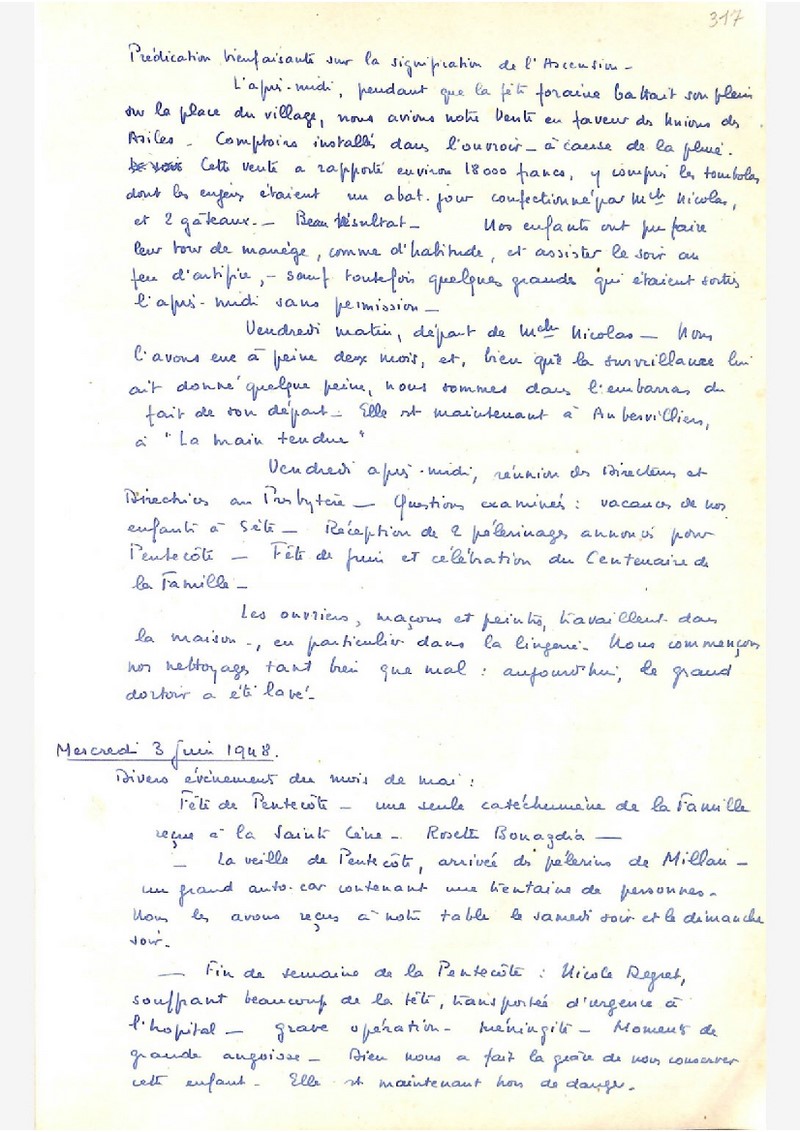 317
Prédication bienfaisante sur la signification de l'Ascension -
L'après-midi, pendant que la fête foraine battait son plein
sur la place du village, nous avions notre Vente en faveur des Unions des
Asiles - Comptoirs installés dans l'ouvroir - à cause de la pluie.
Cette vente a rapporté environ 18000 francs, y compris les tombolas
dont les enjeux étaient un abat-jour confectionné par Melle Nicolas,
et 2 gâteaux. - Beau résultat - Nos enfants ont pu faire
leur tour de manège, comme d'habitude, et assister le soir au
feu d'artifice, - sauf toutefois quelques grandes qui étaient sorties
l'après-midi sans permission -
Vendredi matin, départ de Melle Nicolas - Nous
l'avons eue à peine deux mois, et, bien que la surveillance lui
ait donné quelque peine, nous sommes dans l'embarras du
fait de son départ - Elle est maintenant à Aubervilliers,
à "La main tendue"
Vendredi après-midi, réunion des Directeurs et
Directrices au Presbytère - Questions examinées : vacances de nos
enfants à Sète - Réception de 2 pélerinages annoncés pour
Pentecôte - Fête de Juin et célébration du Centenaire de
la Famille -
Les ouvriers, maçons et peintres, travaillent dans
la maison -, en particulier dans la lingerie - Nous commençons
nos nettoyages tant bien que mal : aujourd'hui, le grand
dortoir a été lavé -
Mercredi 3 Juin 1948.
Divers événements du mois de mai :
Fête de Pentecôte - une seule catéchumène de la Famille
reçue à la Sainte Cène - Rosette Bonazdia -
- La veille de Pentecôte, arrivée des pélerins de Millau -
un grand auto-car contenant une trentaine de personnes -
Nous les avons reçus à notre table le samedi soir et le dimanche
soir -
- Fin de semaine de la Pentecôte : Nicole Regret,
souffrant beaucoup de la tête, transportée d'urgence à
l'hopital - grave opération - méningite - Moments de
grande angoisse - Dieu nous a fait la grâce de nous conserver
cette enfant - Elle est maintenant hors de danger.